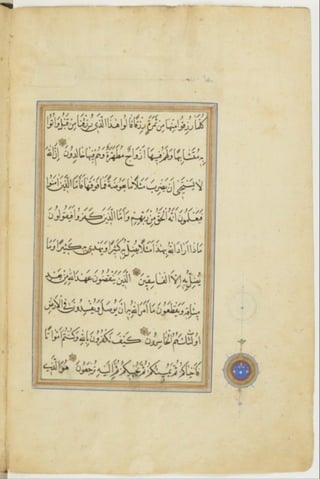 كُلَّمَا رُزِقُوا مِنْهَا مِنْ ثَمَرَةٍ رِزْقًا قَالُوا هَذَا الَّذِي رُزِقْنَا مِنْ قَبْلُ وَاُتُوا
بِهِ مُتَشَابِهًا وَلَهُمْ فِيهَا اَزْوَاجٌ مُطَهَّرَةٌ وَهُمْ فِيهَا خَالِدُونَ اِنَّ اللهَ
لَا يَسْتَحْيِي اَنْ يَضْرِبَ مَثَلًا مَا بَعُوضَةً فَمَا فَوْقَهَا فَاَمَّا الَّذِينَ اٰمَنُوا
فَيَعْلَمُونَ اَنَّهُ الْحَقُّ مِنْ رَبِّهِمْ وَاَمَّا الَّذِينَ كَفَرُوا فَيَقُولُونَ
مَاذَا اَرَادَ اللهُ بِهَذَا مَثَلًا يُضِلُّ بِهِ كَثِيرًا وَيَهْدِي بِهِ كَثِيرًا وَمَا
يُضِلُّ بِهِ اِلَّا الْفَاسِقِينَ الَّذِينَ يَنْقُضُونَ عَهْدَ اللهِ مِنْ بَعْدِ
مِيثَاقِهِ وَيَقْطَعُونَ مَا اَمَرَ اللهُ بِهِ اَنْ يُوصَلَ وَيُفْسِدُونَ فِي الْاَرْضِ
اُولٰئِكَ هُمُ الْخَاسِرُونَ كَيْفَ تَكْفُرُونَ بِاللهِ وَكُنْتُمْ اَمْوَاتًا
فَاَحْيَاكُمْ ثُمَّ يُمِيتُكُمْ ثُمَّ يُحْيِيكُمْ ثُمَّ اِلَيْهِ تُرْجَعُونَ هُوَ الَّذِي